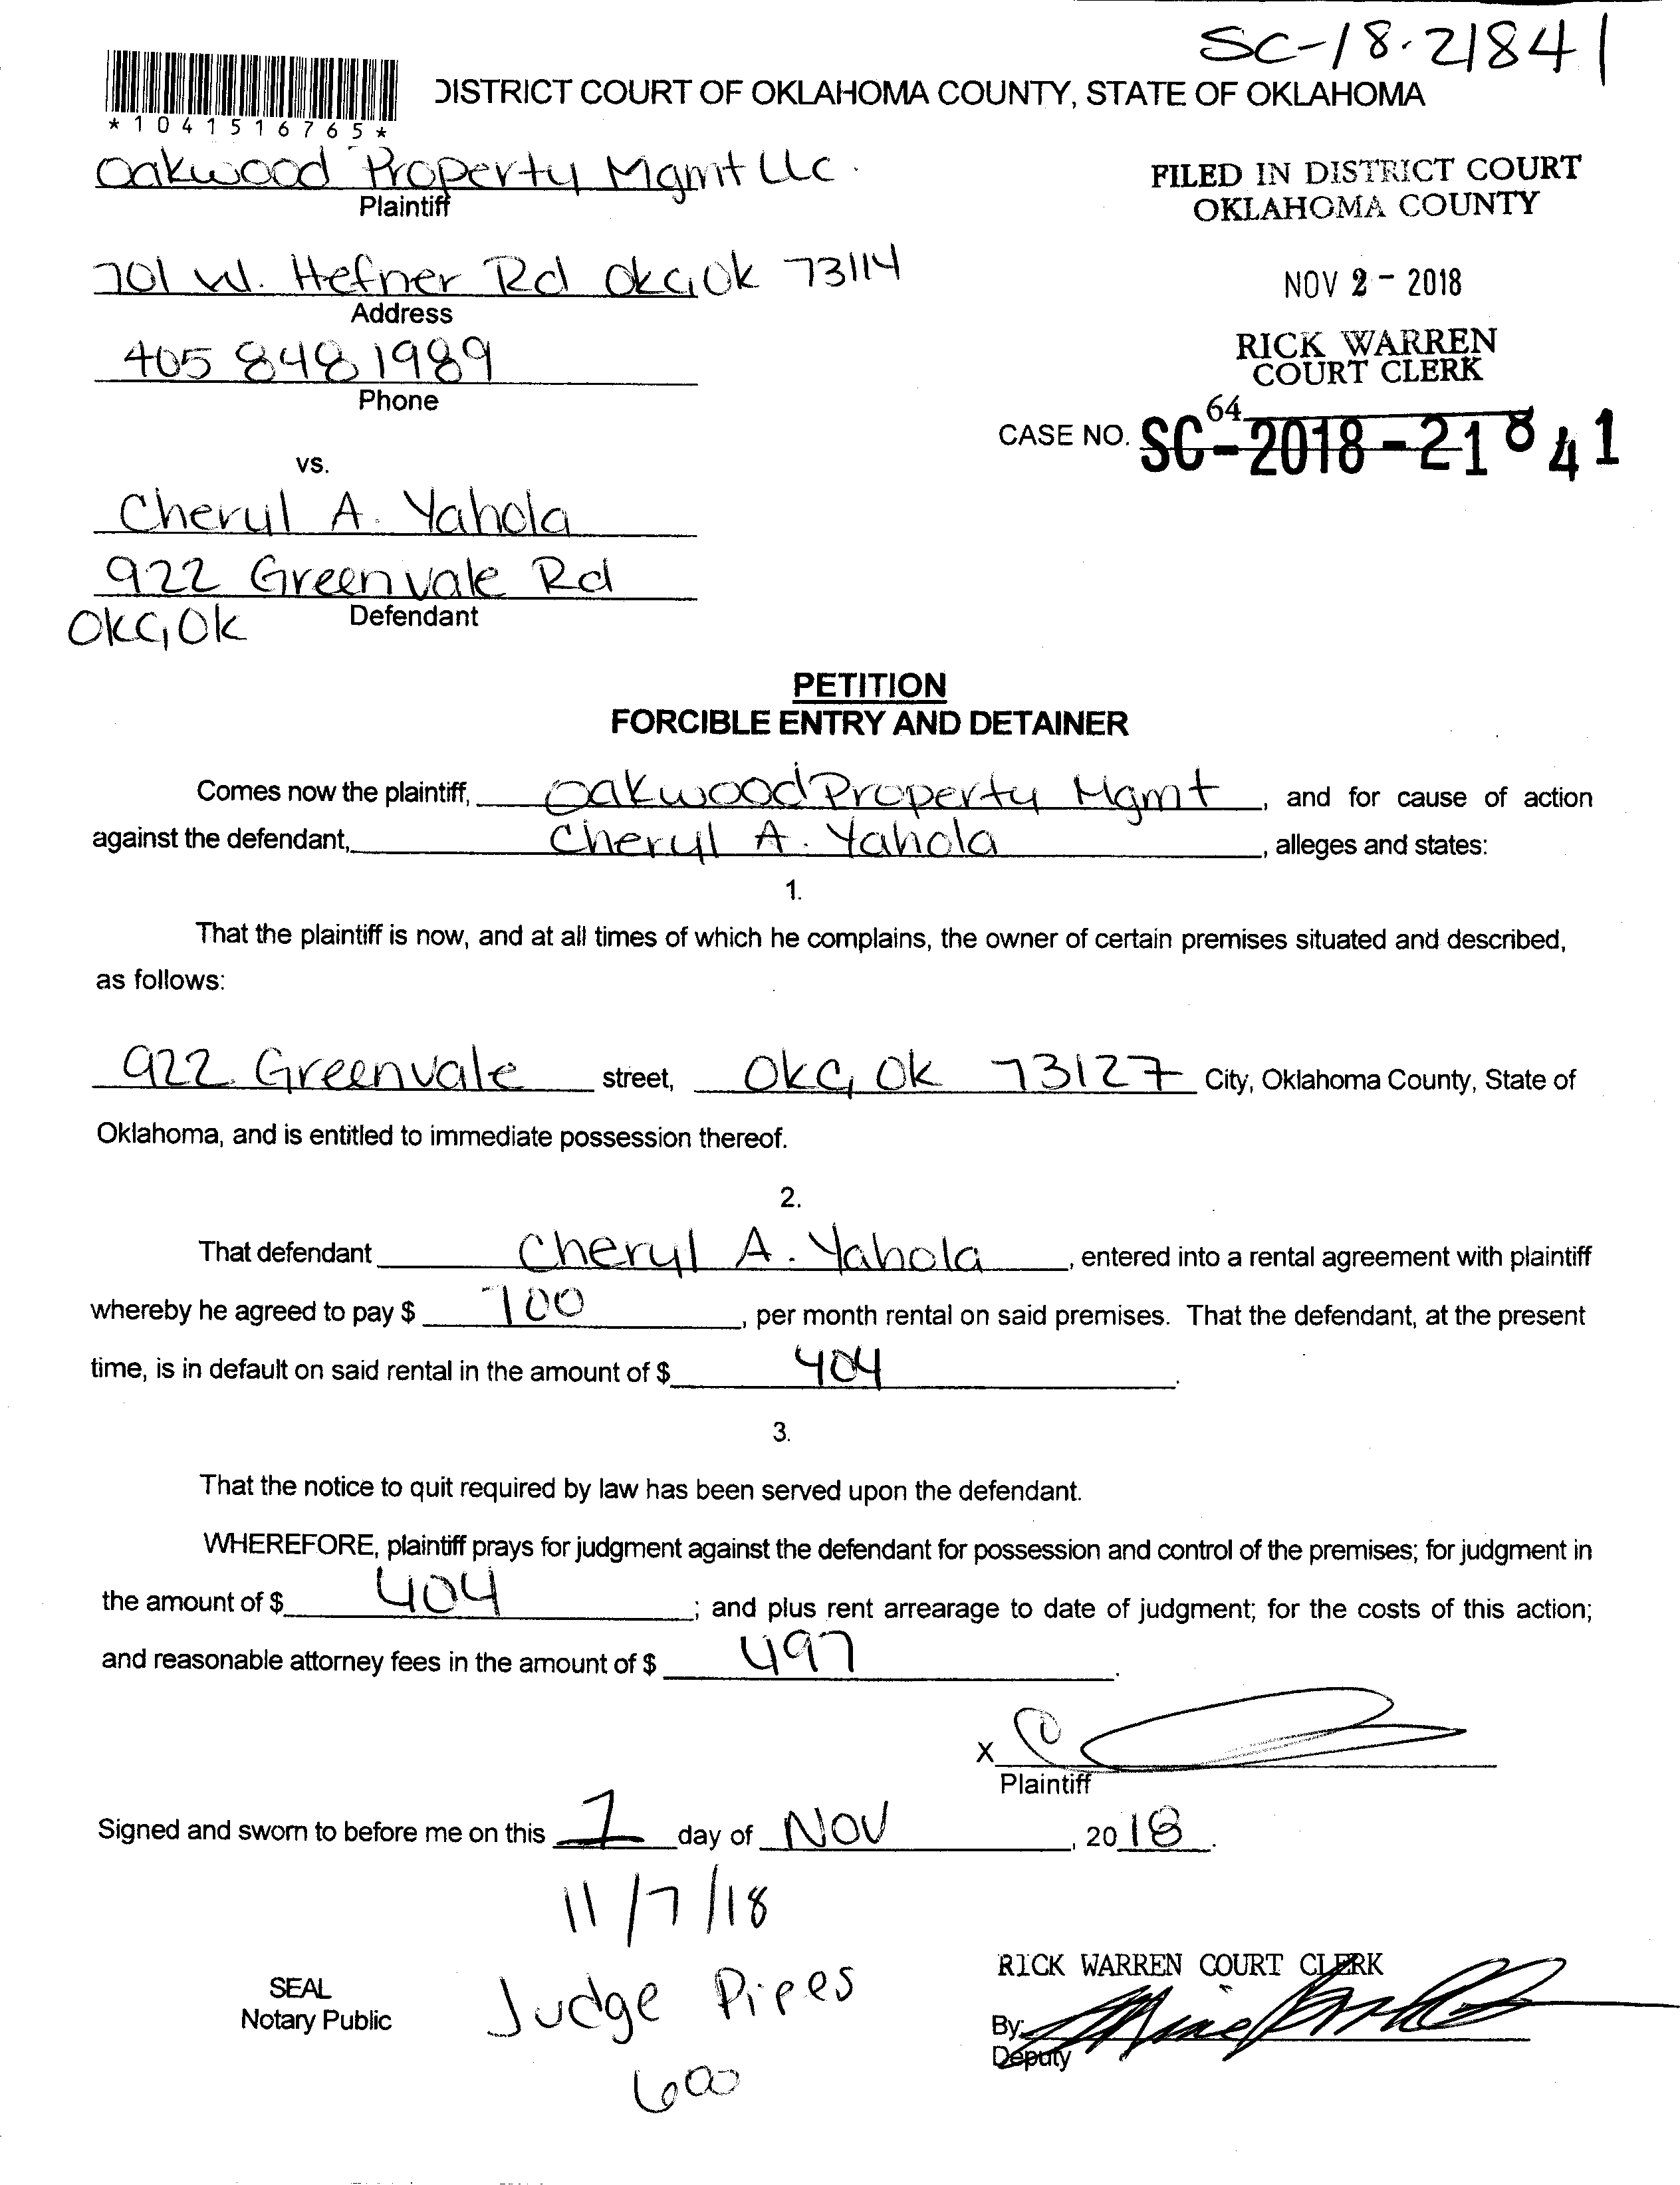 SC-18-21841
DISTRICT COURT OF OKLAHOMA COUNTY, STATE OF OKLAHOMA
*1041516765*
Oakwood Property Mgmt LLC.
Plaintiff
FILED IN DISTRICT COURT
OKLAHOMA COUNTY
701 W. Hefner Rd OKC, OK 73114
Address
NOV 2 - 2018
405 848 1989
Phone
RICK WARREN
COURT CLERK
64
CASE NO. SC-2018-21841
vs.
Cheryl A. Yahola
922 Greenvale Rd
OKC, OK Defendant
PETITION
FORCIBLE ENTRY AND DETAINER
Comes now the plaintiff, Oakwood Property Mgmt, and for cause of action
against the defendant, Cheryl A. Yahola, alleges and states:
1.
That the plaintiff is now, and at all times of which he complains, the owner of certain premises situated and described,
as follows:
922 Greenvale street, OKC, OK 73127 City, Oklahoma County, State of
Oklahoma, and is entitled to immediate possession thereof.
2.
That defendant Cheryl A. Yahola, entered into a rental agreement with plaintiff
whereby he agreed to pay $ 700, per month rental on said premises. That the defendant, at the present
time, is in default on said rental in the amount of $ 404.
3.
That the notice to quit required by law has been served upon the defendant.
WHEREFORE, plaintiff prays for judgment against the defendant for possession and control of the premises; for judgment in
the amount of $ 404; and plus rent arrearage to date of judgment; for the costs of this action;
and reasonable attorney fees in the amount of $ 497.
X
Plaintiff
Signed and sworn to before me on this day of NOV, 2018.
11/7/18
SEAL
Notary Public
Judge Pipes
600
RICK WARREN COURT CLERK
By:
Deputy